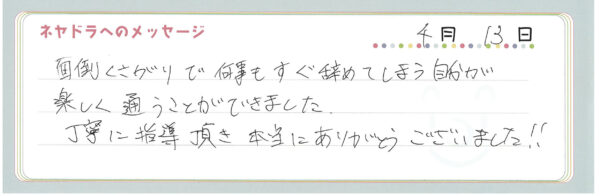 ネヤドラへのメッセージ
4月 13日
面倒くさがりで何事もすぐ辞めてしまう自分が
楽しく通うことができました.
丁寧に指導頂き本当にありがとうございました!!